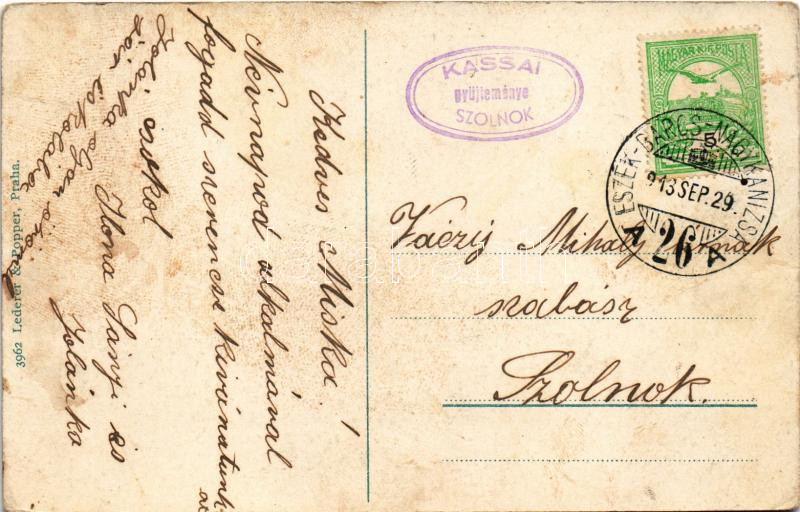 Kedves Miska!
Névnapod alkalmával
fogadd szerencse kivánatunk-
at
Ilona Sanyi és
Jolánka
csokol
Jolánka
KASSAI
gyűjteménye
SZOLNOK
MAGYAR KIR. POSTA
5
ESZÉK-BARCS-NAGYKANIZSA
913 SEP. 29.
A 26 A
Váczy Mihály úrnak
szabász
Szolnok.
3962 Lederer & Popper, Praha.